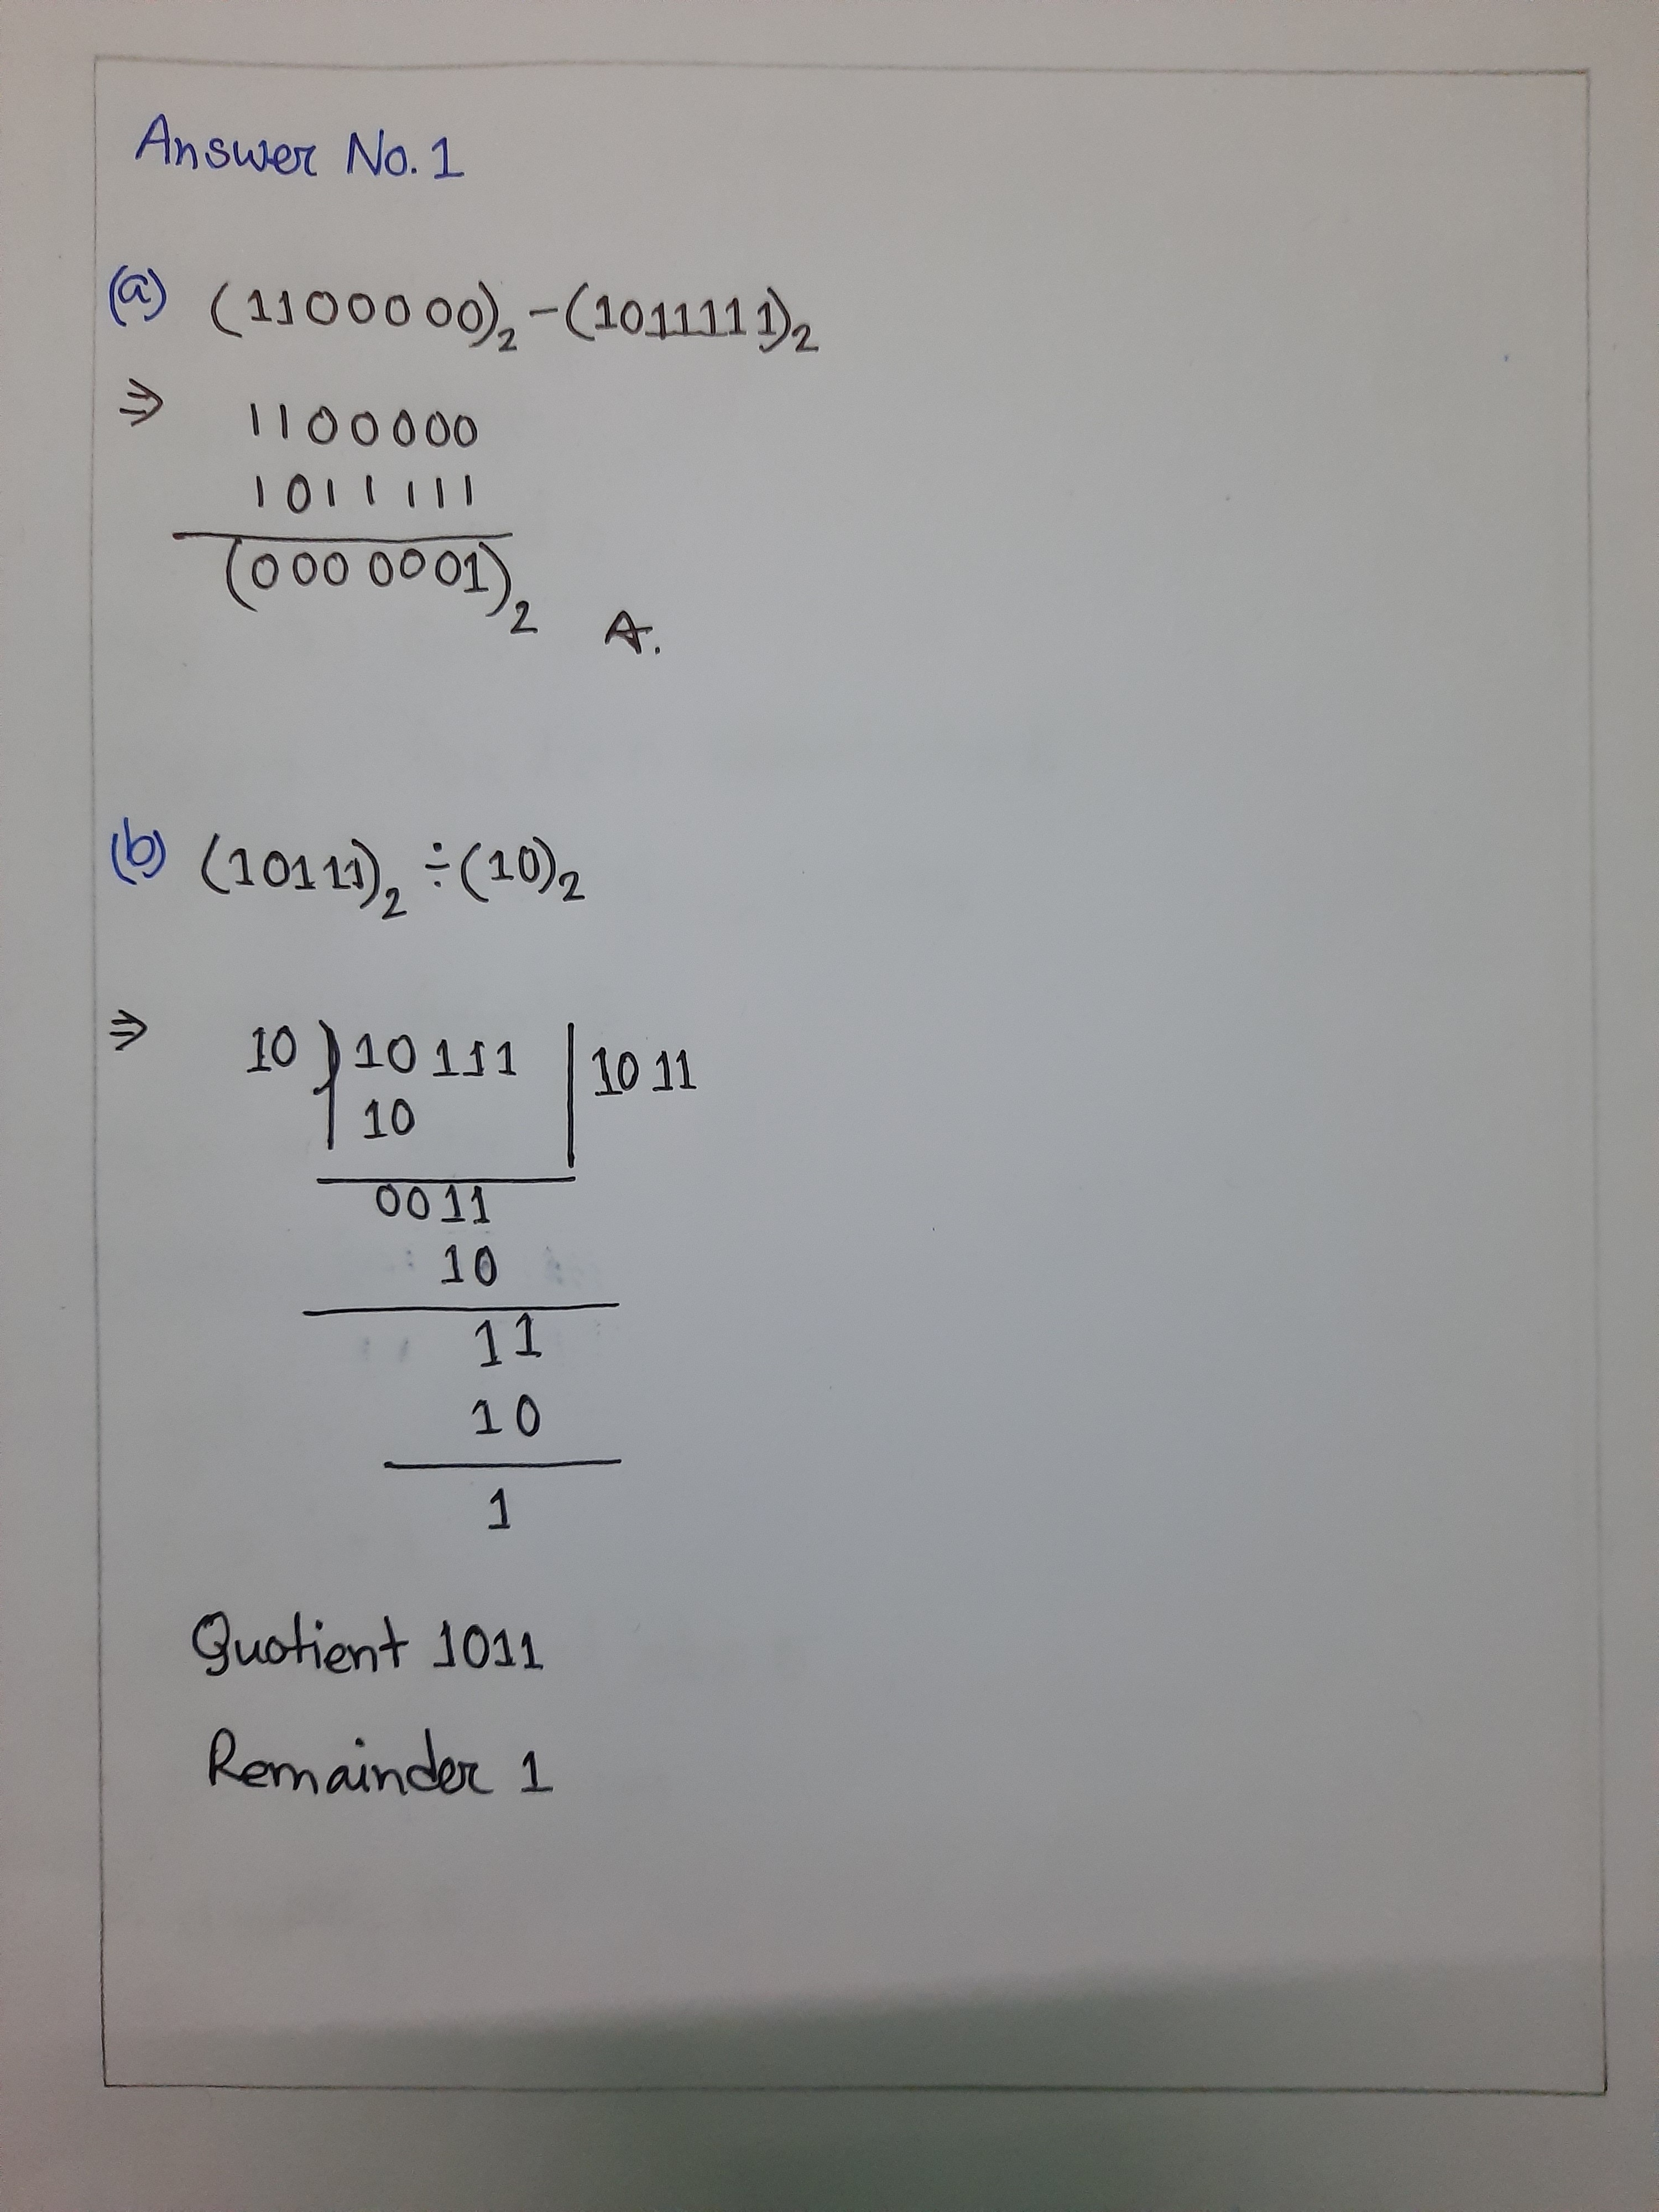 Answer No. 1
(a) (1100000)₂ - (1011111)₂
⇒ 1100000
1011111
(0000001)₂ A.
(b) (10111)₂ ÷ (10)₂
⇒ 10 ) 10111 | 1011
10
0011
10
11
10
1
Quotient 1011
Remainder 1